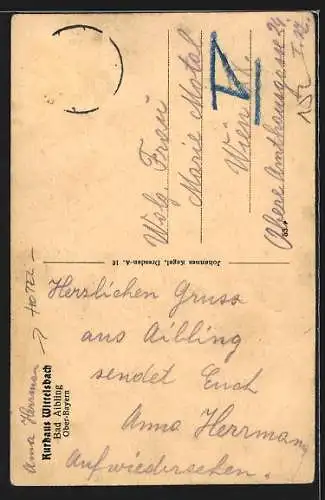 Kurhaus Wittelsbach
Bad Aibling
Ober-Bayern
Anna Herrman → HOTEL –
Herzlichen Gruss
aus Aibling
sendet Euch
Anna Herrmann
Aufwiedersehen.
Johannes Kegel, Dresden-A. 16
Wolg. Frau
Marie Matal
Wien V.
Obere Amthausgasse 24
I. St.
V